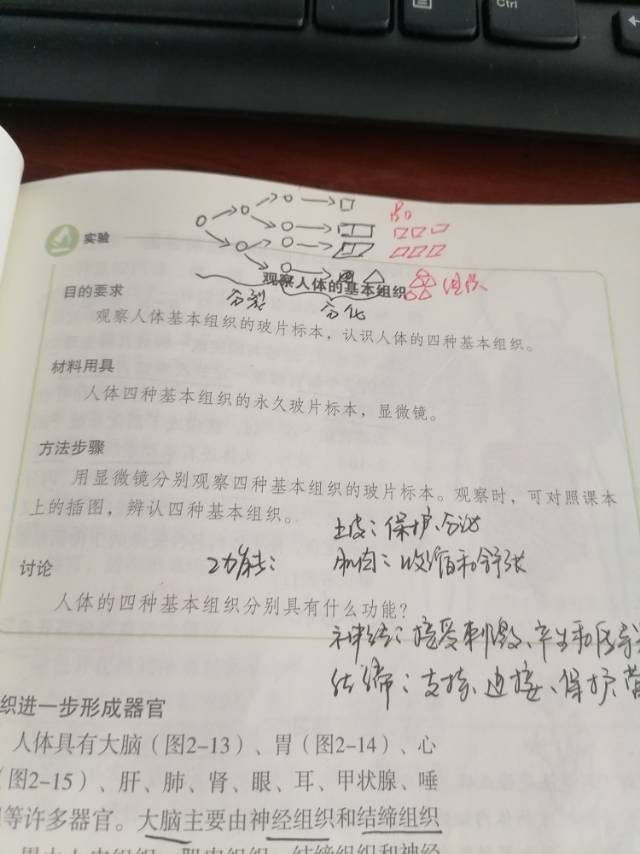 Ctrl
实验
观察人体的基本组织
组织
分裂
分化
目的要求
观察人体基本组织的玻片标本，认识人体的四种基本组织。
材料用具
人体四种基本组织的永久玻片标本，显微镜。
方法步骤
用显微镜分别观察四种基本组织的玻片标本。观察时，可对照课本
上的插图，辨认四种基本组织。
上皮：保护、分泌
讨论
功能：
肌肉：收缩和舒张
人体的四种基本组织分别具有什么功能？
神经：接受刺激、产生和传导
结缔：支持、连接、保护、营
织进一步形成器官
人体具有大脑（图2-13）、胃（图2-14）、心
（图2-15）、肝、肺、肾、眼、耳、甲状腺、唾
等许多器官。大脑主要由神经组织和结缔组织